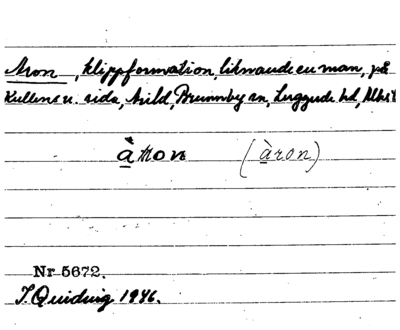 Aron, klippformation, liknande en man, på
Kullens v. sida, Arild, Brunnby sn, Luggude hd, Mlhs l
àron (àron)
Nr 5672.
I. Quiding 1946.